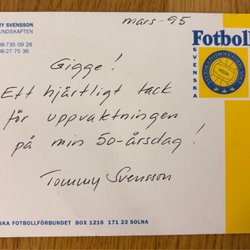 mars-95
MY SVENSSON
UNDSKAPTEN
8-735 09 28
8-27 75 36
Fotboll
SVENSKA
Gigge!
Ett hjärtligt tack
för uppvaktningen
på min 50-årsdag!
Tommy Svensson
SKA FOTBOLLFÖRBUNDET BOX 1216 171 23 SOLNA